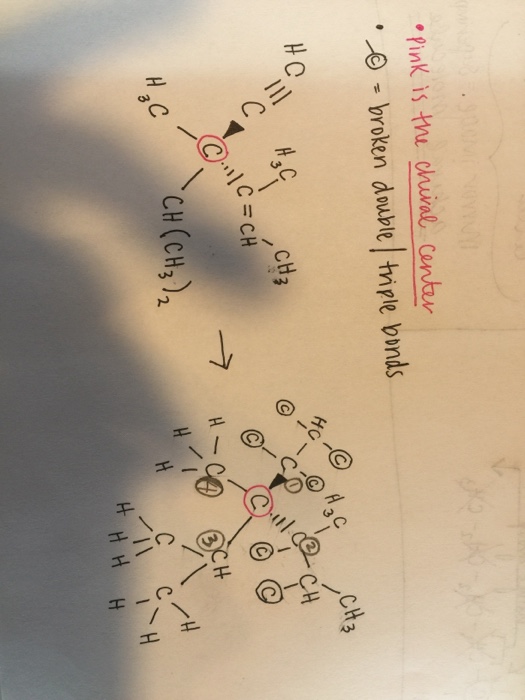 • Pink is the chiral center
• -Ⓒ = broken double / triple bonds
HC≡C
H₃C
C
H₃C
C=CH
CH₃
CH(CH₃)₂
→
Ⓒ
HC
Ⓒ
Ⓒ
C
Ⓒ
①
H₃C
C
②
Ⓒ
Ⓒ
CH
CH₃
C
H
H
C
④
H
③
CH
H
H
H
C
C
H
H
H